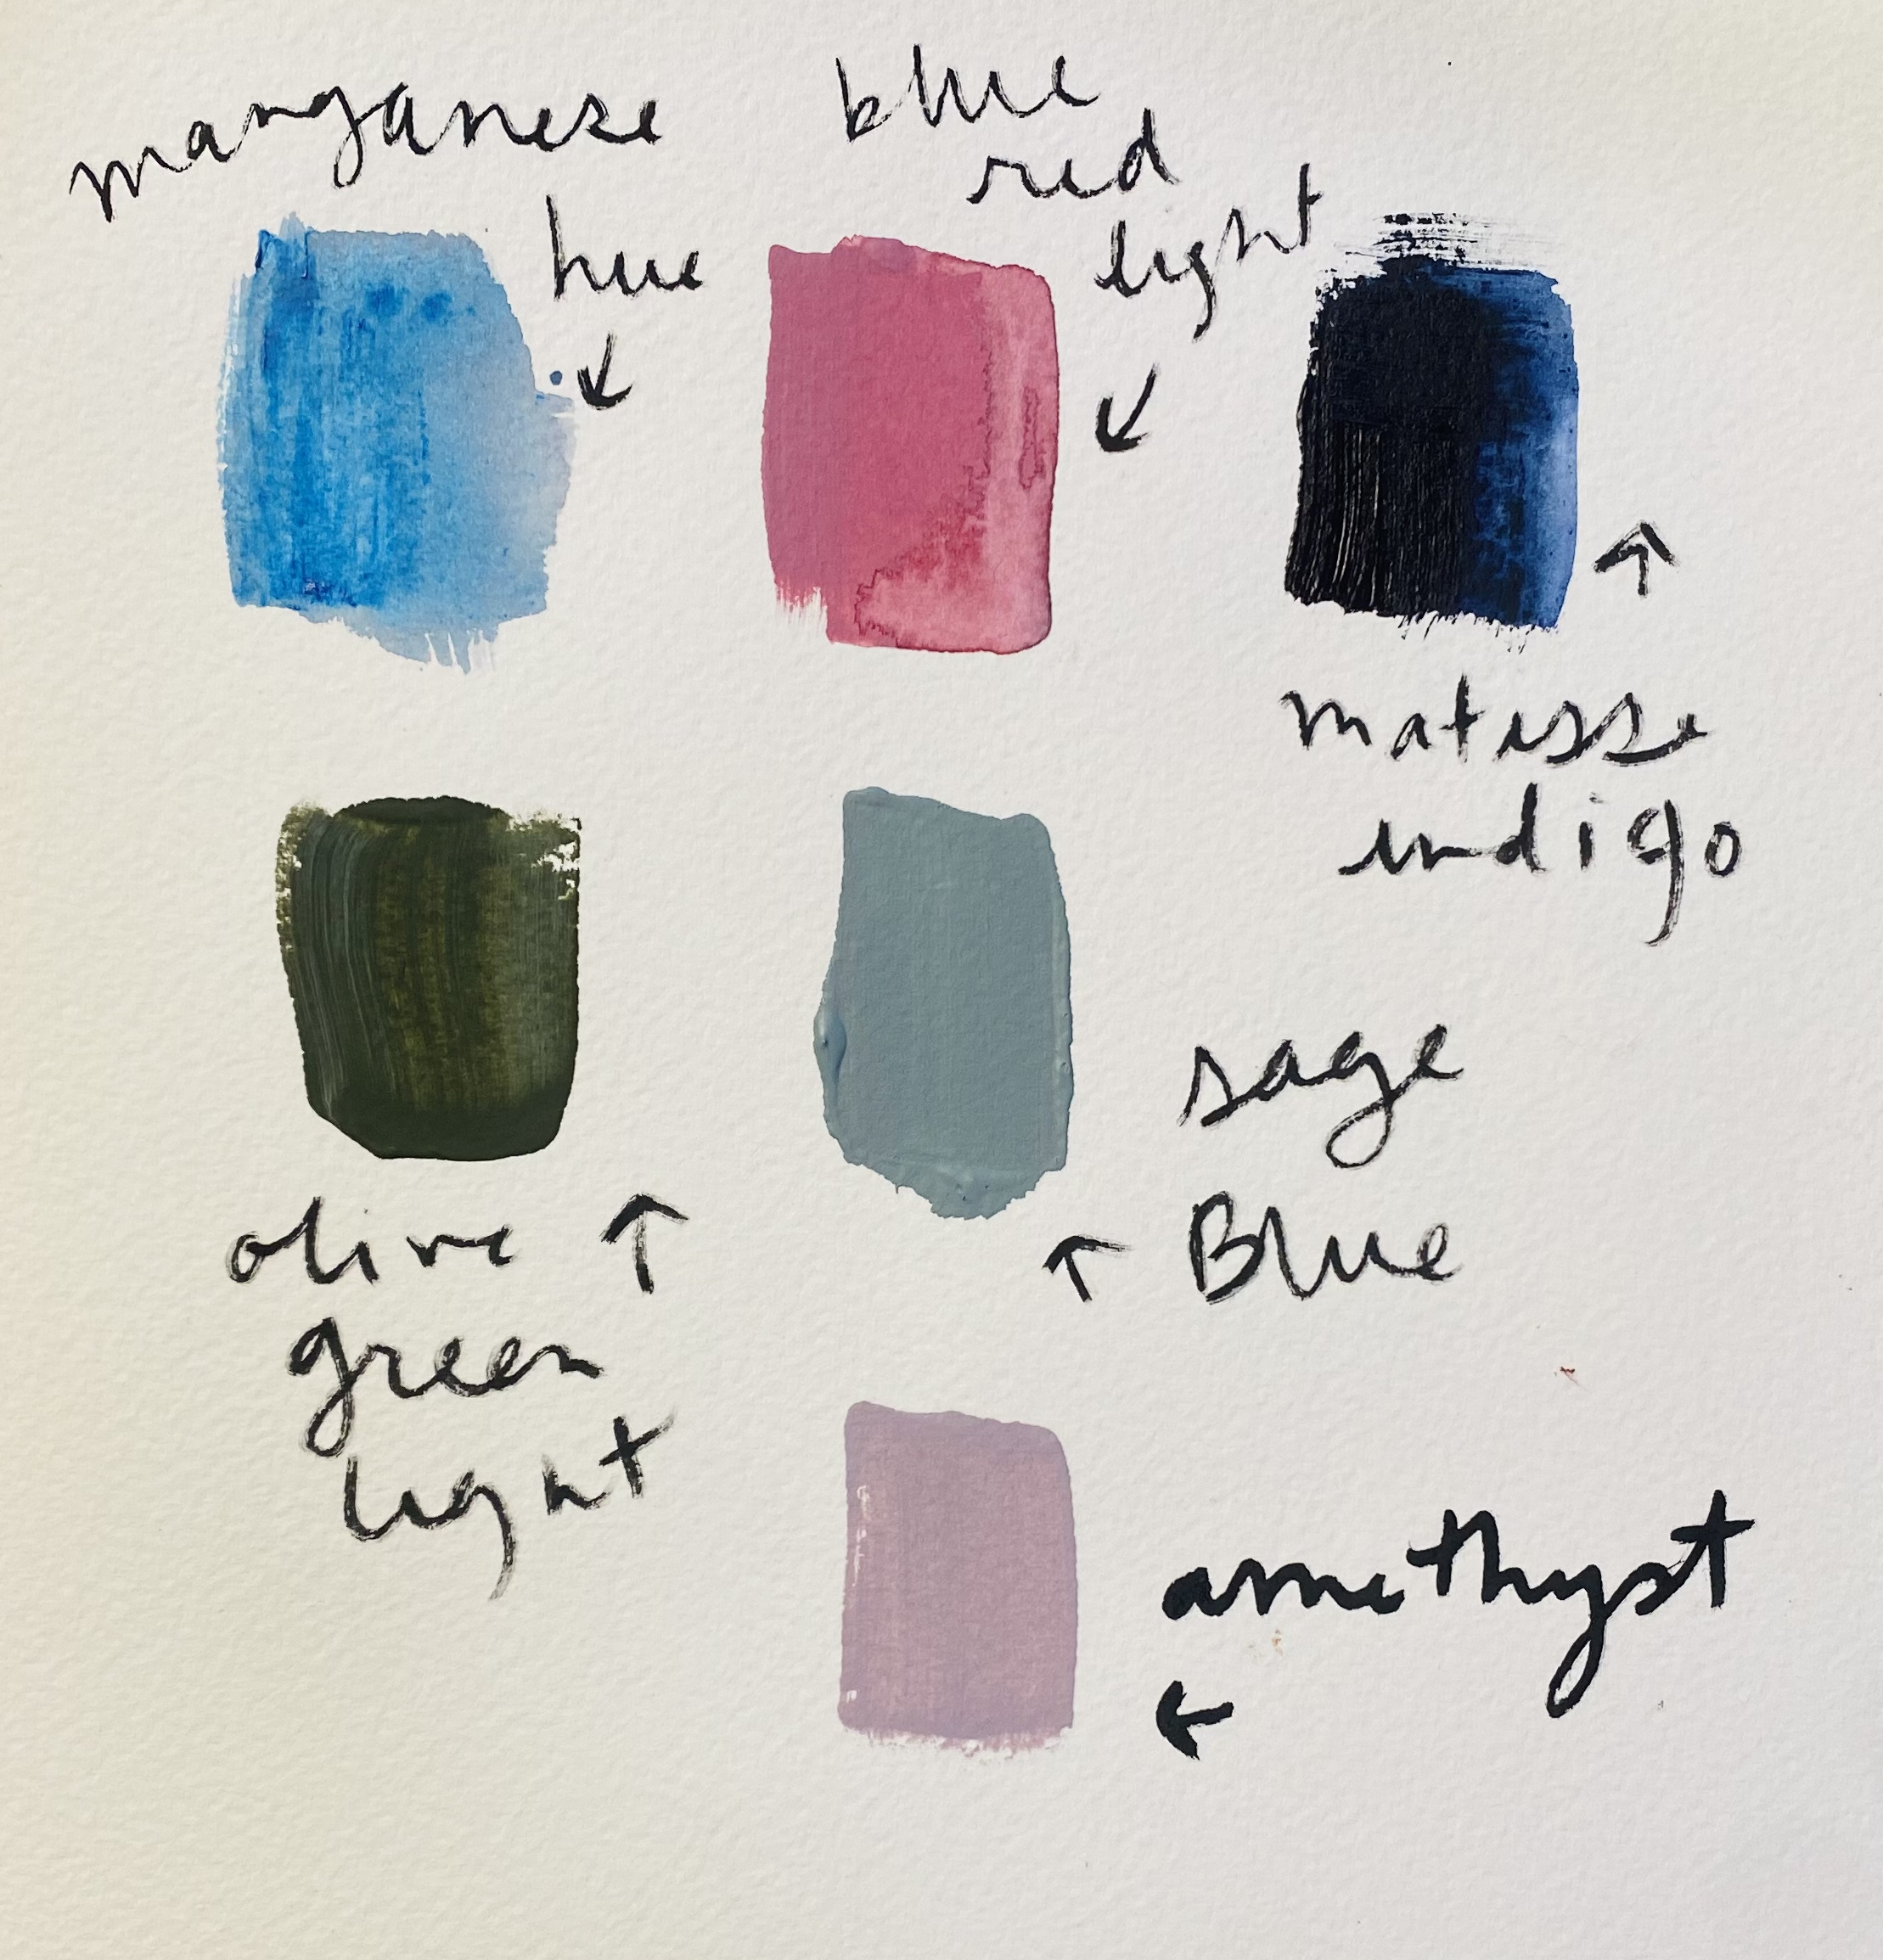 manganese blue
hue
red
light
matisse
indigo
sage
Blue
olive
green
light
amethyst